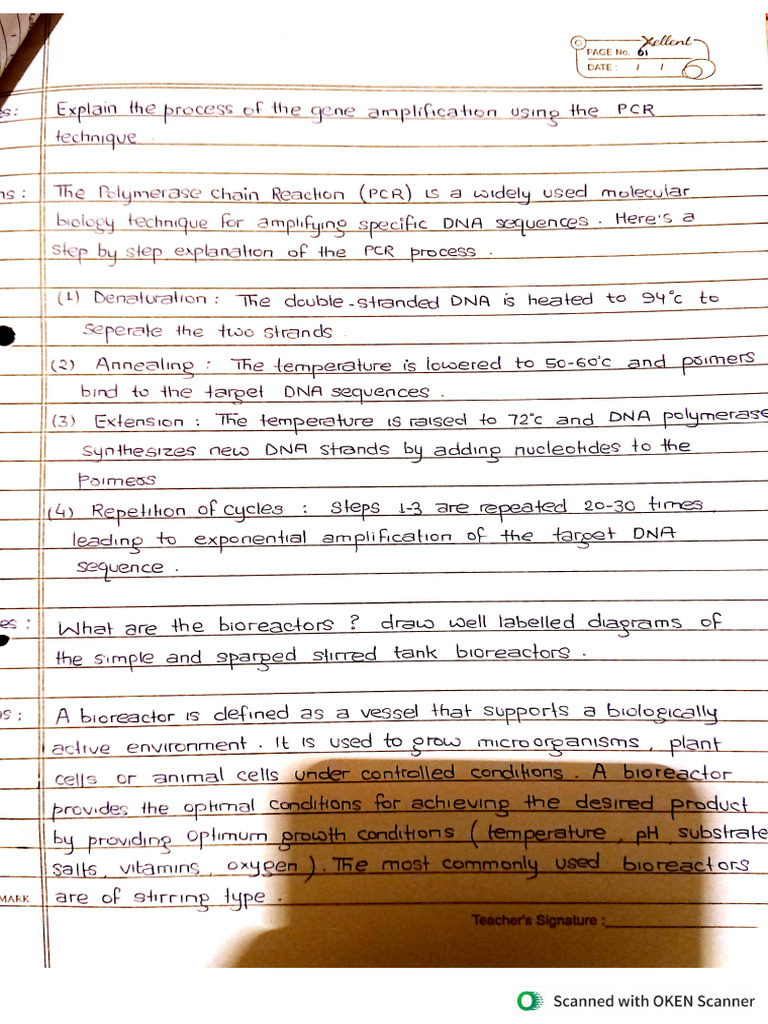 Xellent
PAGE No. 61
DATE: / /
es: Explain the process of the gene amplification using the PCR
technique.
ns: The Polymerase Chain Reaction (PCR) is a widely used molecular
biology technique for amplifying specific DNA sequences. Here's a
step by step explanation of the PCR process.
(1) Denaturation: The double-stranded DNA is heated to 94°c to
seperate the two strands.
(2) Annealing: The temperature is lowered to 50-60°c and poimers
bind to the target DNA sequences.
(3) Extension: The temperature is raised to 72°c and DNA polymerase
synthesizes new DNA strands by adding nucleotides to the
poimeos
(4) Repetition of cycles: Steps 1-3 are repeated 20-30 times,
leading to exponential amplification of the target DNA
sequence.
es: What are the bioreactors? draw well labelled diagrams of
the simple and sparged stirred tank bioreactors.
ns: A bioreactor is defined as a vessel that supports a biologically
active environment. It is used to grow microorganisms, plant
cells or animal cells under controlled conditions. A bioreactor
provides the optimal conditions for achieving the desired product
by providing optimum growth conditions (temperature, pH, substrate
salts, vitamins, oxygen). The most commonly used bioreactors
MARK are of stirring type.
Teacher's Signature:
Scanned with OKEN Scanner